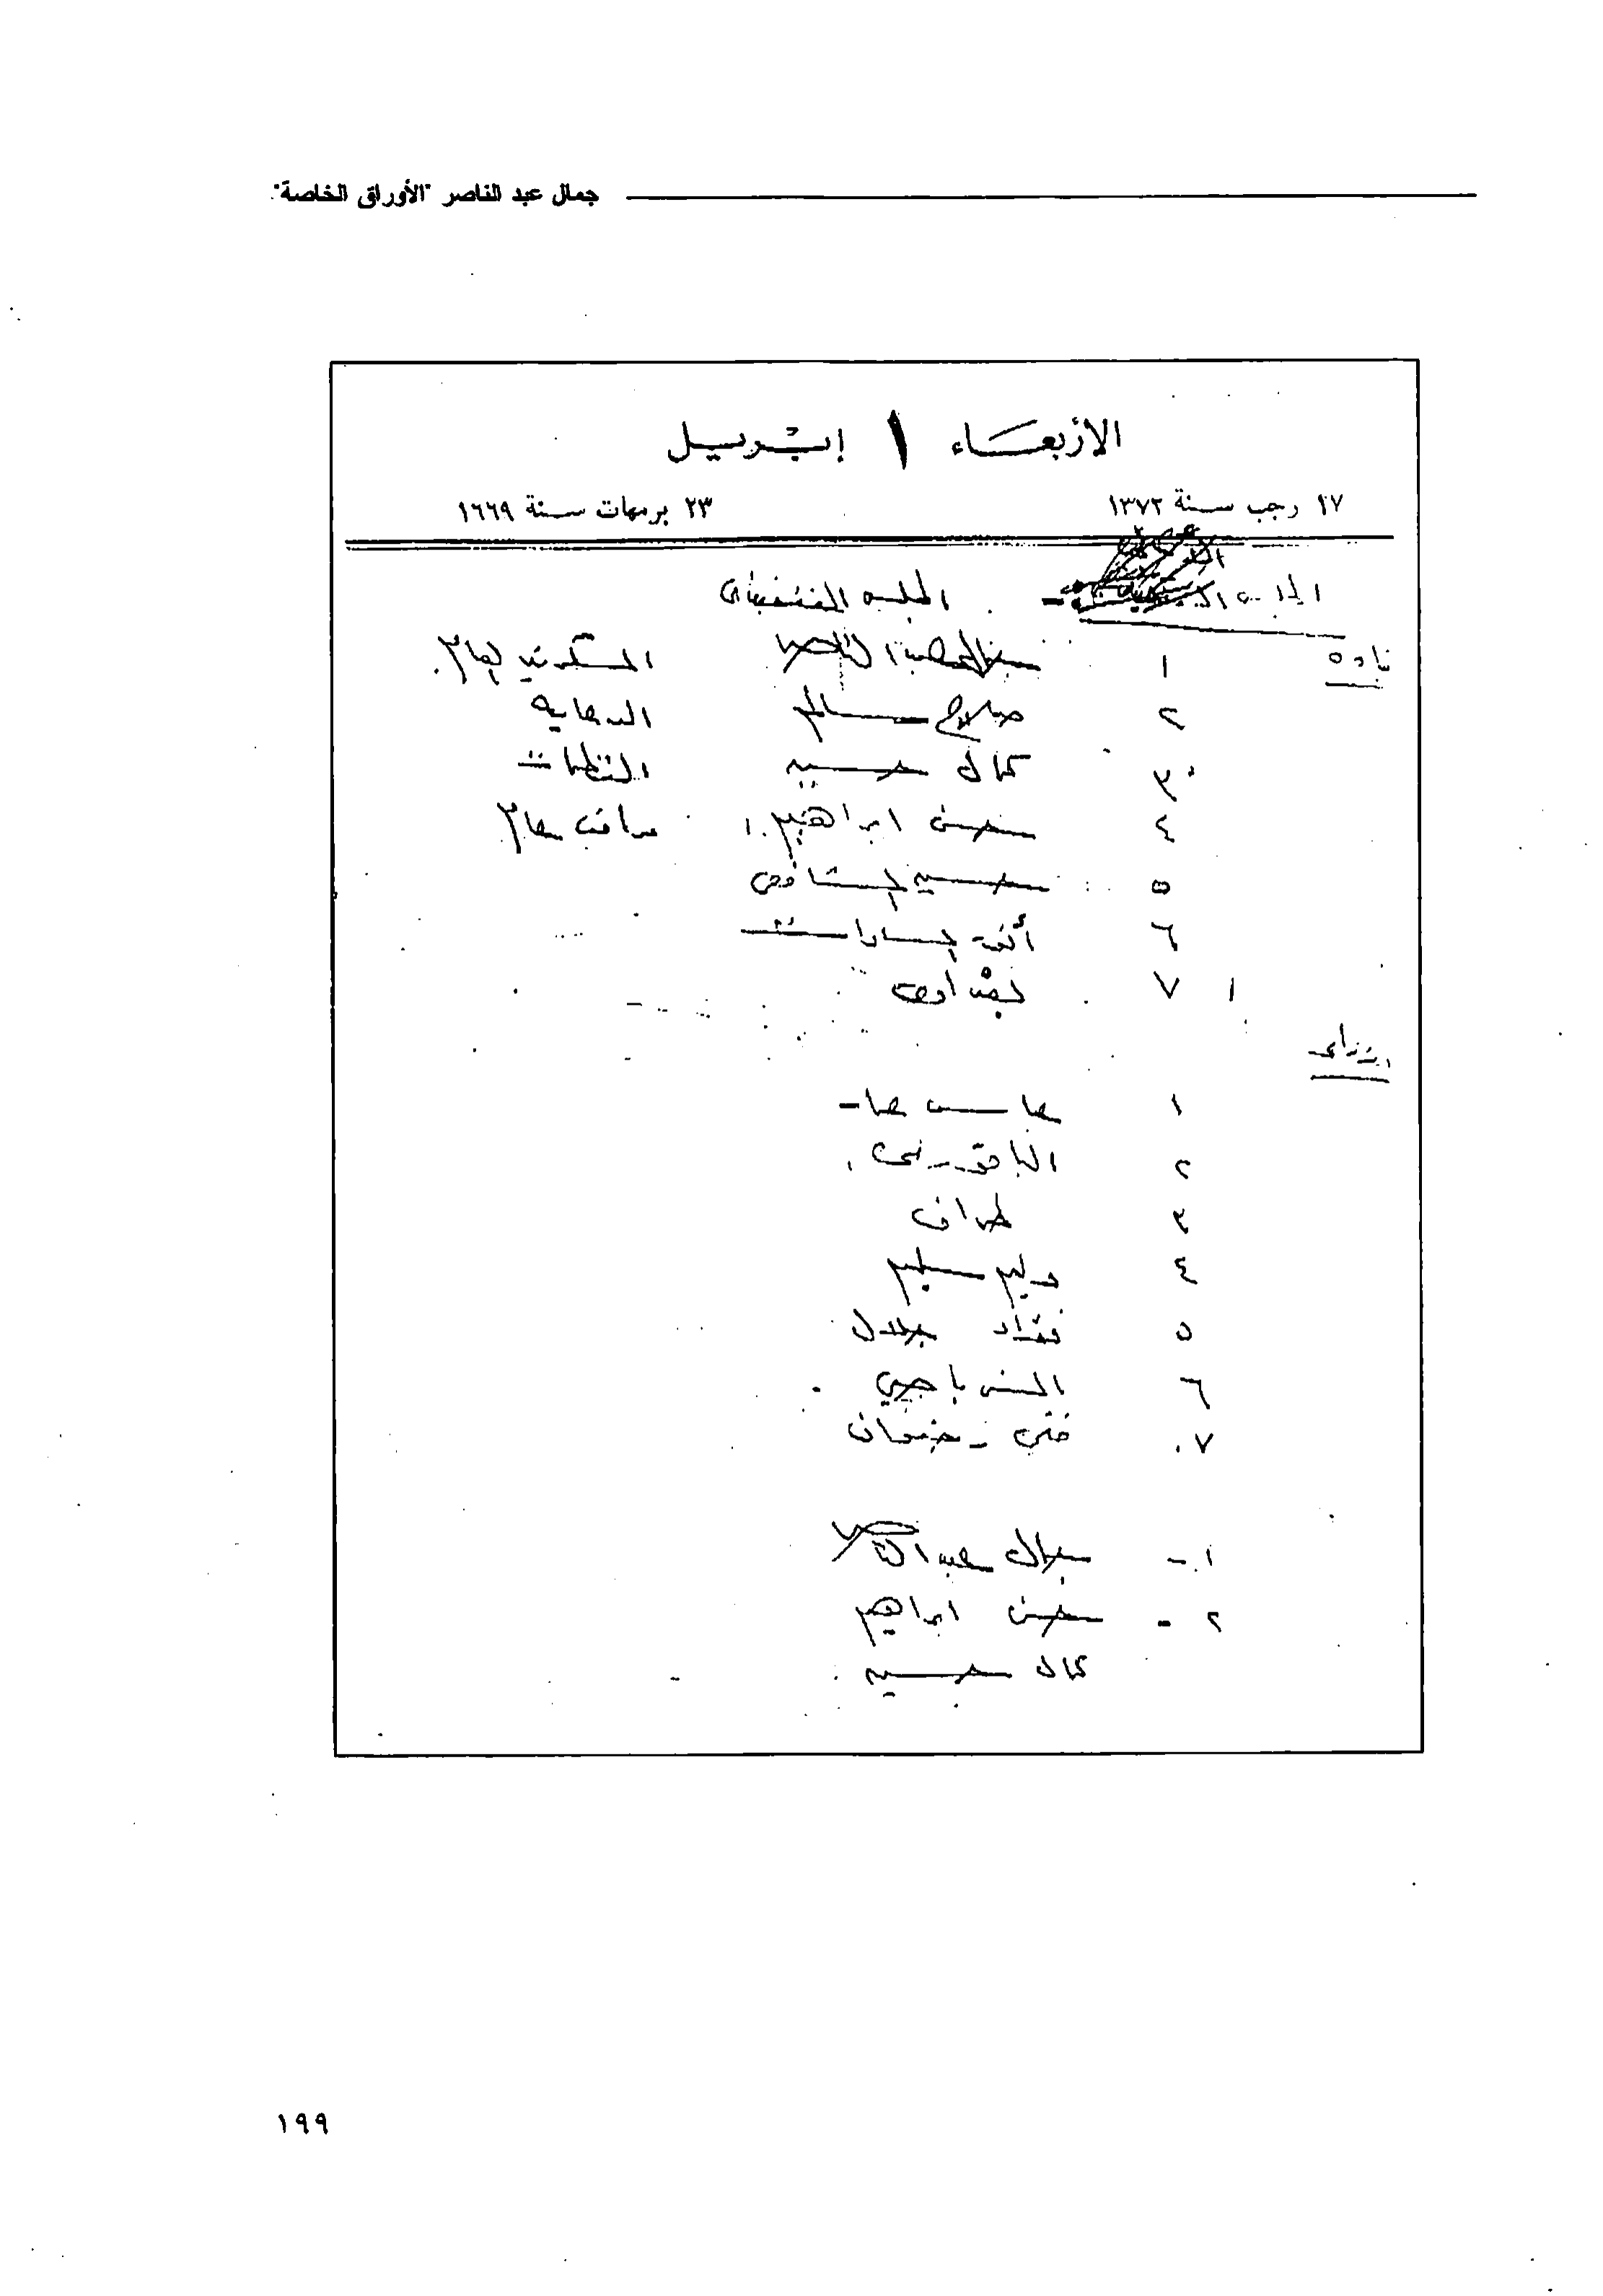 جمال عبد الناصر "الأوراق الخاصة"
الأربعاء ١ إبريل
١٧ رجب سنة ١٣٧٢ ٢٣ برمهات سنة ١٦٦٩
المجلس التنفيذى
١ جمال عبد الناصر السكرتير العام
٢ صلاح سالم الدعايه
٣ كمال حسين المنظمات
٤ حسن ابراهيم مراقب عام
٥ حسين الشافعى
٦ أنور السادات
٧ بغدادى
وزراء
١ عباس عمار
٢ الباقورى
٣ طراف
٤ وليم سليم
٥ فؤاد جلال
٦ الشرباجي
٧ فتحى رضوان
١ - جمال عبد الناصر
٢ - حسن ابراهيم
كمال حسين
١٩٩